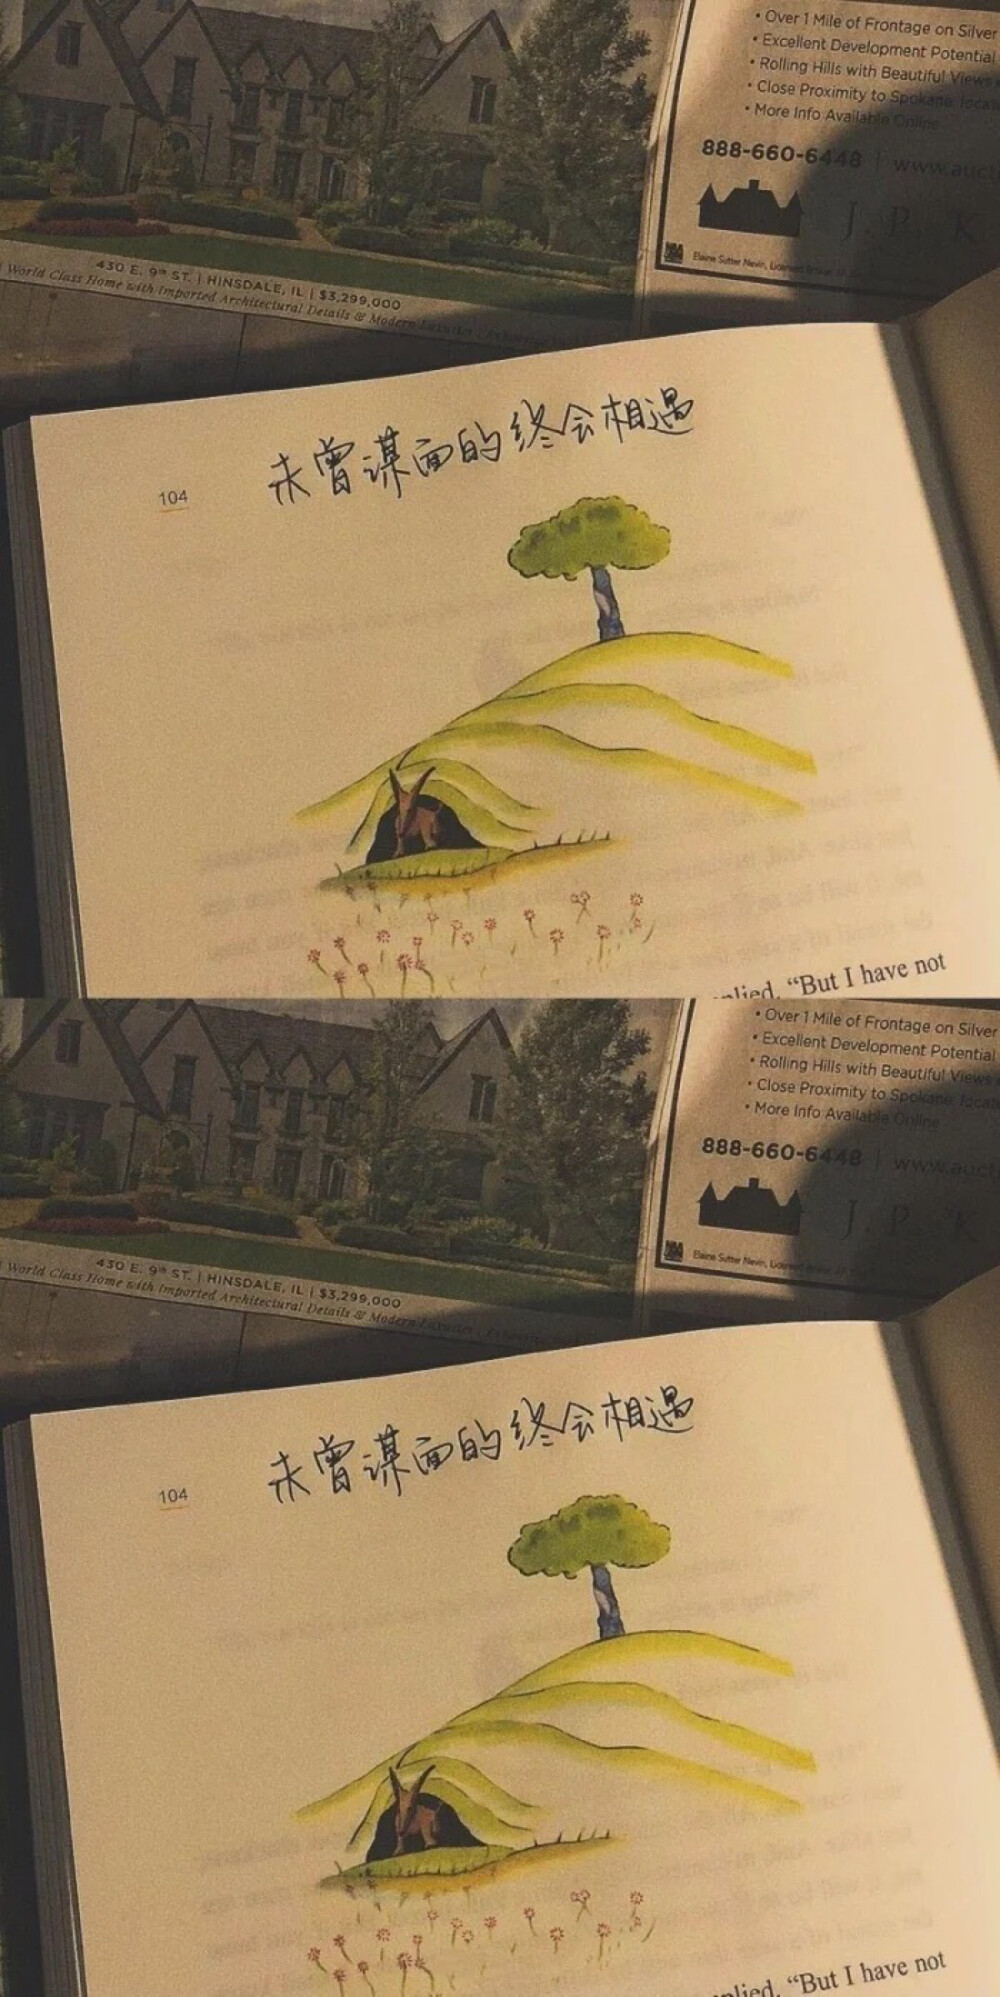 • Over 1 Mile of Frontage on Silver
• Excellent Development Potential
• Rolling Hills with Beautiful Views
• Close Proximity to Spokane
• More Info Available Online
888-660-6448 | www.auct
J. P. K
Elaine Sutter Nevin, Licensed
430 E. 9th ST. | HINSDALE, IL | $3,299,000
World Class Home with Imported Architectural Details & Modern Luxuries
未曾谋面的终会相遇
104
plied. “But I have not
• Over 1 Mile of Frontage on Silver
• Excellent Development Potential
• Rolling Hills with Beautiful Views
• Close Proximity to Spokane
• More Info Available Online
888-660-6448 | www.auct
J. P. K
Elaine Sutter Nevin, Licensed
430 E. 9th ST. | HINSDALE, IL | $3,299,000
World Class Home with Imported Architectural Details & Modern Luxuries
未曾谋面的终会相遇
104
plied. “But I have not